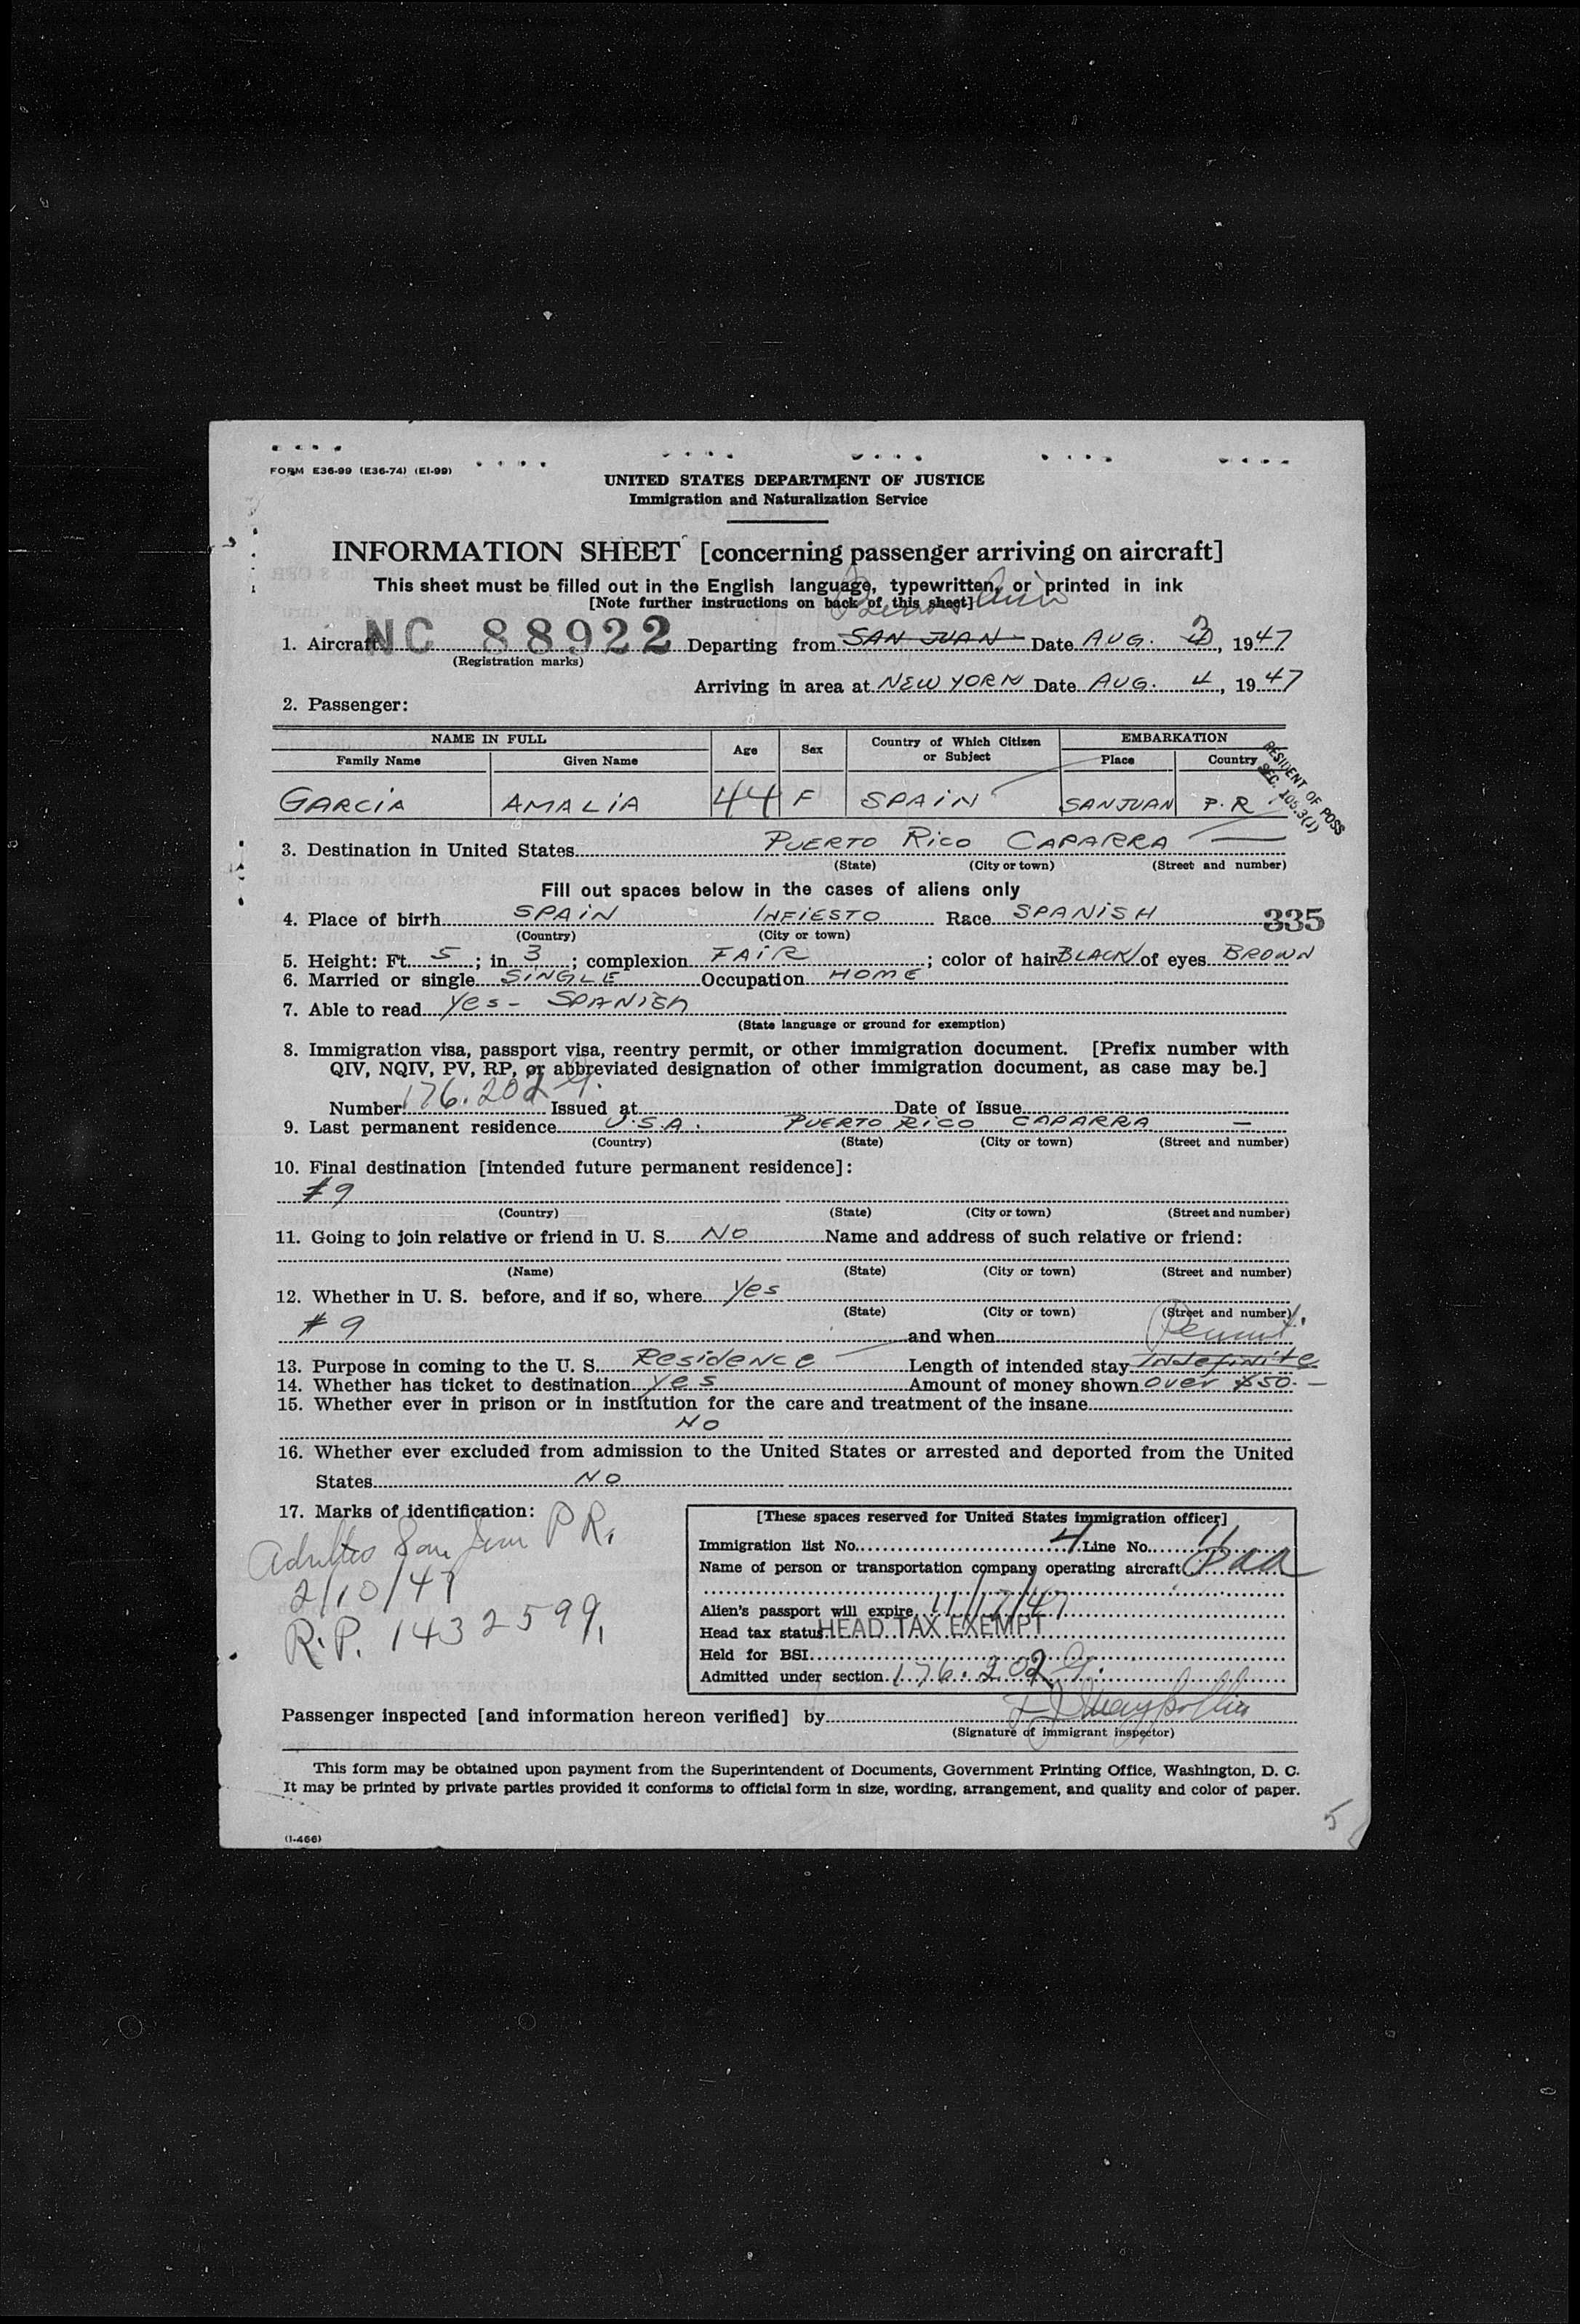 FORM E36-99 (E36-74) (EI-99)
UNITED STATES DEPARTMENT OF JUSTICE
Immigration and Naturalization Service
INFORMATION SHEET [concerning passenger arriving on aircraft]
This sheet must be filled out in the English language, typewritten, or printed in ink
[Note further instructions on back of this sheet]
1. Aircraft NC 88922 Departing from SAN JUAN Date AUG. 3, 1947
(Registration marks)
Arriving in area at NEW YORK Date AUG. 4, 1947
2. Passenger:
NAME IN FULL Age Sex Country of Which Citizen or Subject EMBARKATION
Family Name Given Name Place Country
RESIDENT OF POSS
SEC. 105.3(J)
GARCIA AMALIA 44 F SPAIN SAN JUAN P.R
3. Destination in United States PUERTO RICO CAPARRA —
(State) (City or town) (Street and number)
Fill out spaces below in the cases of aliens only
4. Place of birth SPAIN INFIESTO Race SPANISH 335
(Country) (City or town)
5. Height: Ft. 5; in 3; complexion FAIR; color of hair BLACK of eyes BROWN
6. Married or single SINGLE Occupation HOME
7. Able to read Yes - SPANISH
(State language or ground for exemption)
8. Immigration visa, passport visa, reentry permit, or other immigration document. [Prefix number with
QIV, NQIV, PV, RP, or abbreviated designation of other immigration document, as case may be.]
Number 176.202 Issued at Date of Issue
9. Last permanent residence U.S.A. PUERTO RICO CAPARRA —
(Country) (State) (City or town) (Street and number)
10. Final destination [intended future permanent residence]:
#9
(Country) (State) (City or town) (Street and number)
11. Going to join relative or friend in U. S. NO Name and address of such relative or friend:
(Name) (State) (City or town) (Street and number)
12. Whether in U. S. before, and if so, where Yes
(State) (City or town) (Street and number)
#9 and when
13. Purpose in coming to the U. S. Residence Length of intended stay Indefinite
14. Whether has ticket to destination yes Amount of money shown over $50.—
15. Whether ever in prison or in institution for the care and treatment of the insane
NO
16. Whether ever excluded from admission to the United States or arrested and deported from the United
States NO
17. Marks of identification:
San Juan P R.
2/10/47
R.P. 1432599
[These spaces reserved for United States immigration officer]
Immigration list No. 4 Line No. 11
Name of person or transportation company operating aircraft Paa
Alien's passport will expire 11/17/47
Head tax status HEAD TAX EXEMPT
Held for BSI
Admitted under section 176.202
Passenger inspected [and information hereon verified] by
(Signature of immigrant inspector)
This form may be obtained upon payment from the Superintendent of Documents, Government Printing Office, Washington, D. C.
It may be printed by private parties provided it conforms to official form in size, wording, arrangement, and quality and color of paper.
5
(I-466)